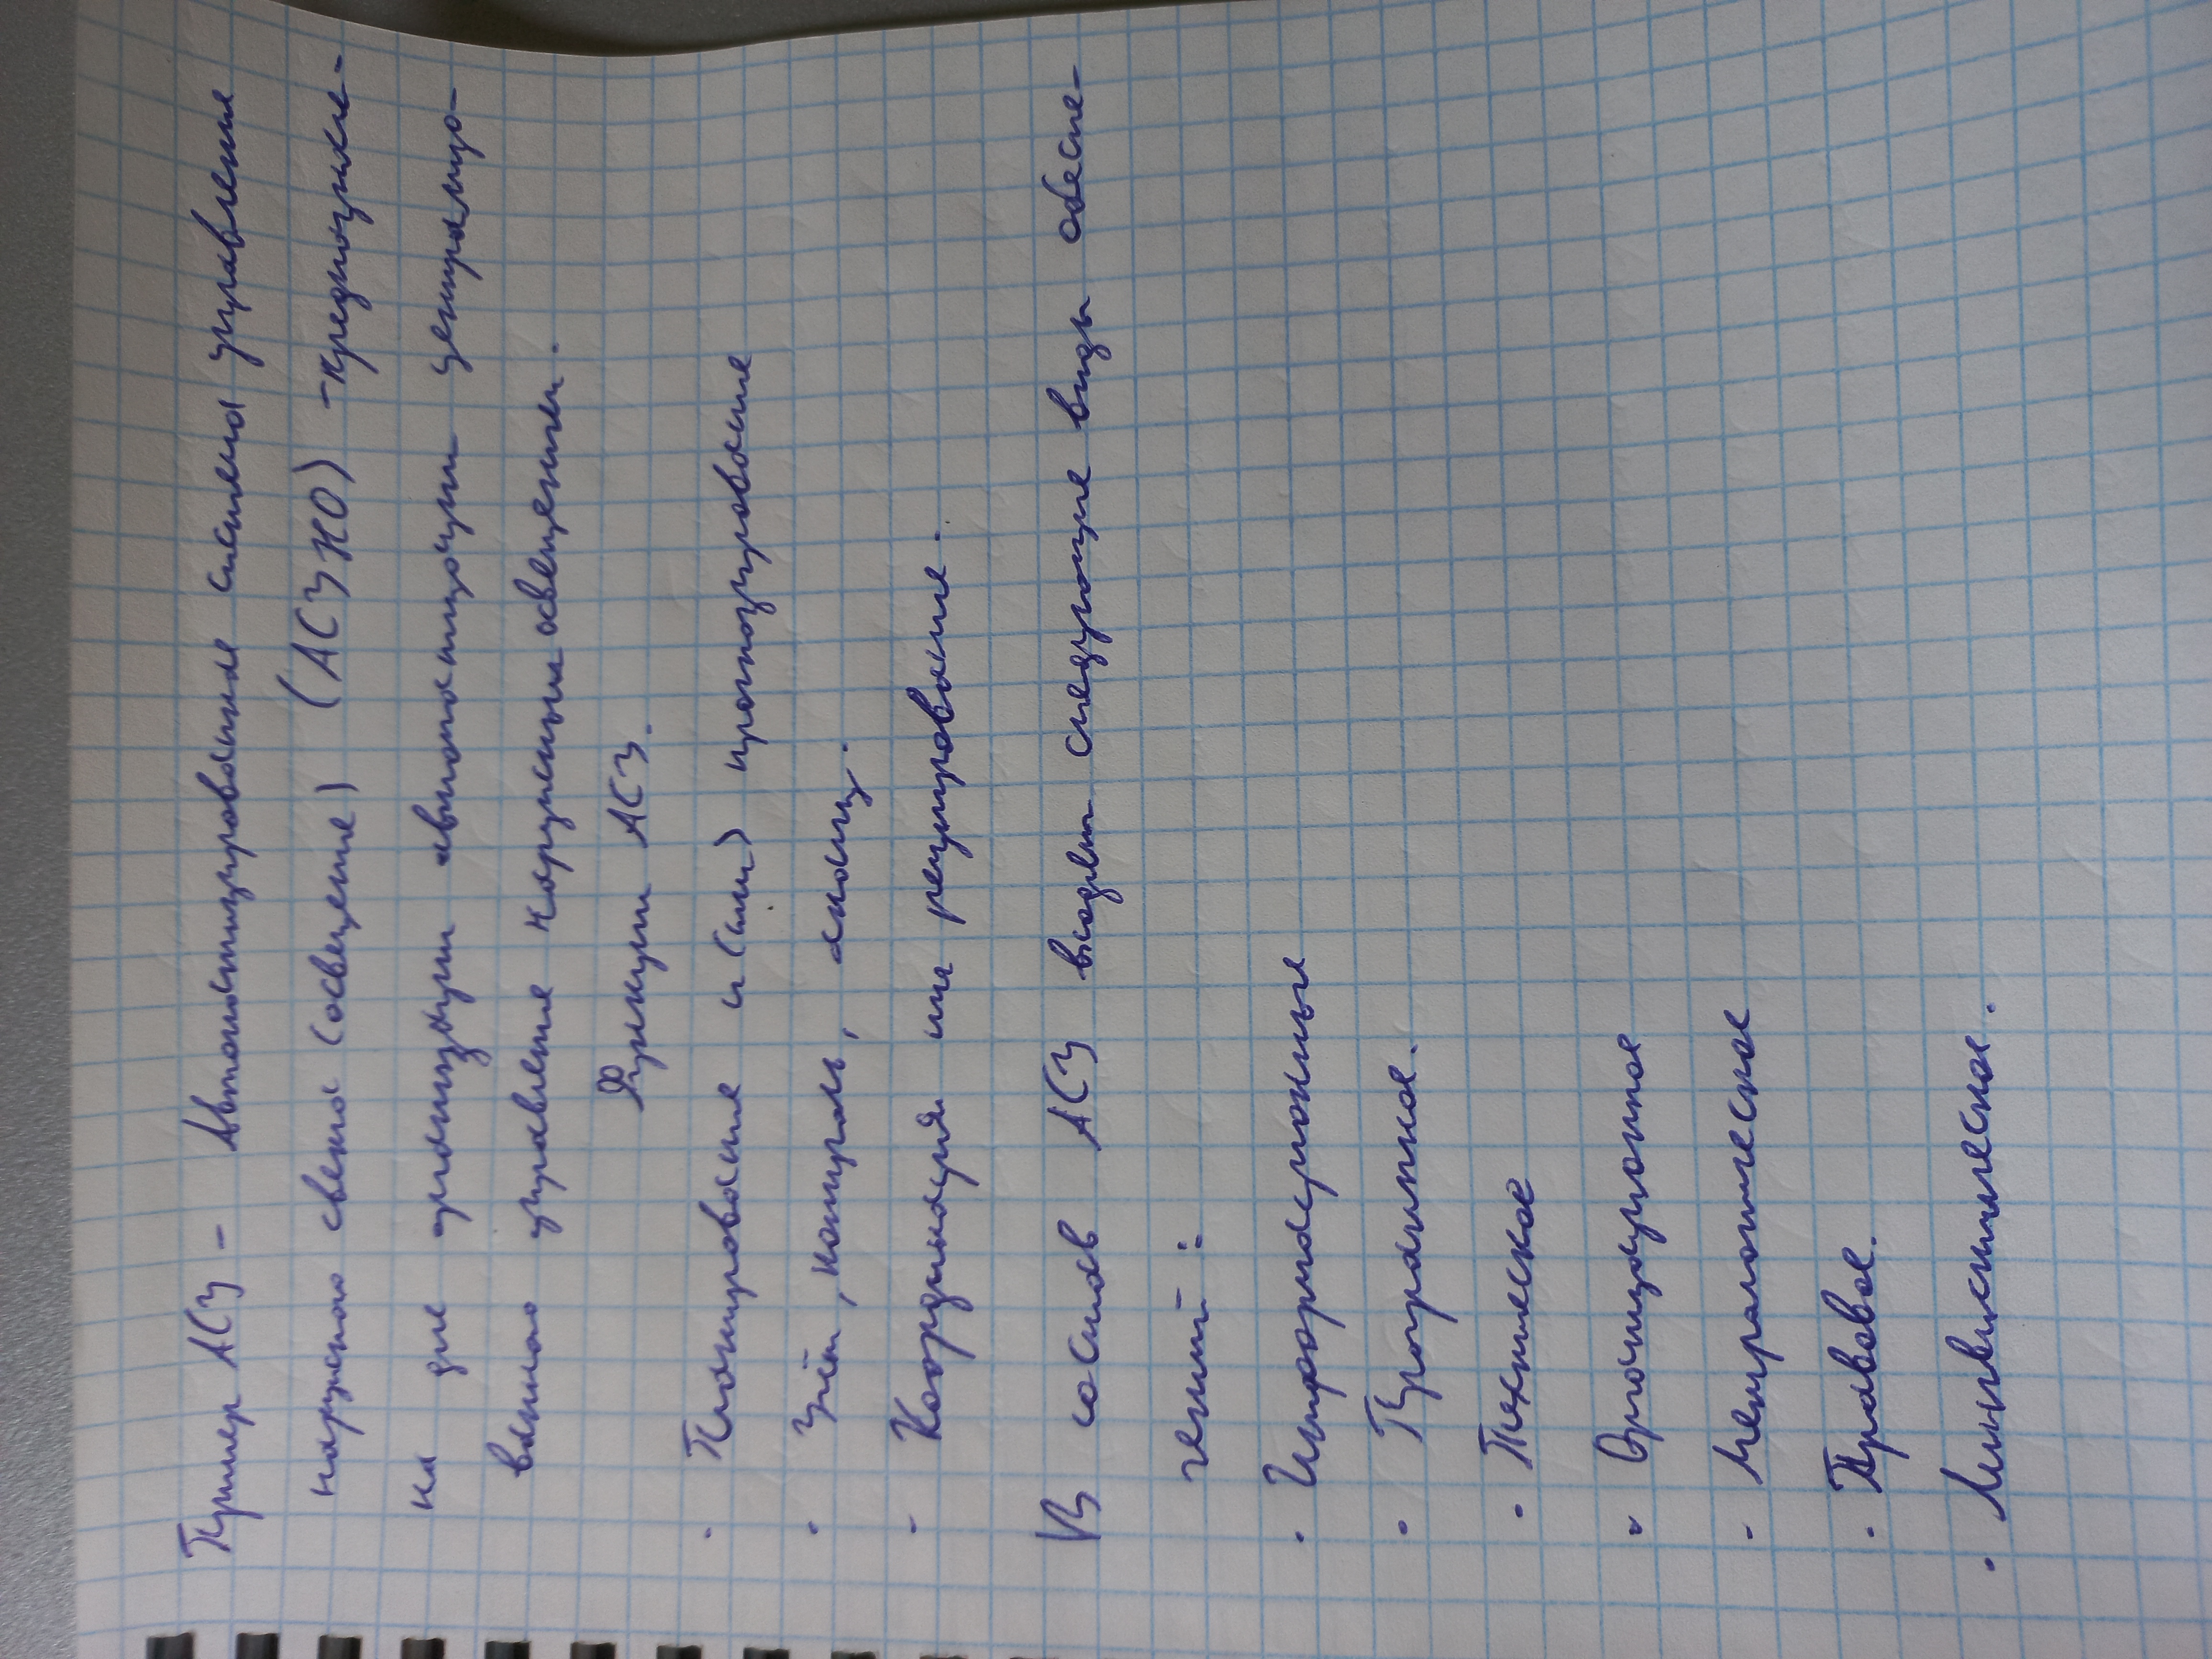 Пример АСУ - Автоматизированная система управления
наружного света (освещение) (АСУНО) - предназначе-
на для организации автоматизации централизо-
ванного управление наружным освещением.
Функции АСУ.
· Планирование и (или) прогнозирование
· Учёт, контроль, анализ.
- Координация или регулирование.
В состав АСУ входят следующие виды обеспе-
чений:
· Информационные
· Програмное.
· Техническое
· Организационное
- Метрологическое
· Правовое.
· Лингвистическое.